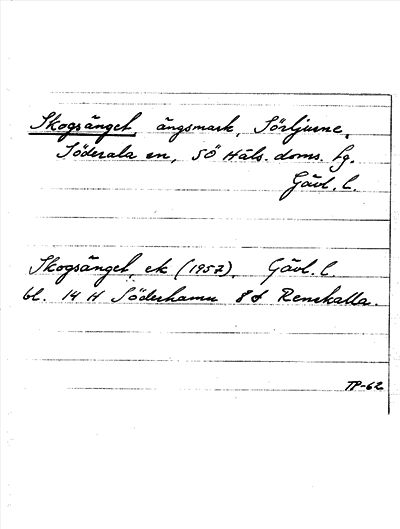 Skogsänget, ängsmark, Sörljusne,
Söderala sn, SÖ Häls. doms. tg.
Gävl. l.
Skogsänget, ek (1957). Gävl. l.
bl. 14 H Söderhamn 8 d Renskalla.
TP-62